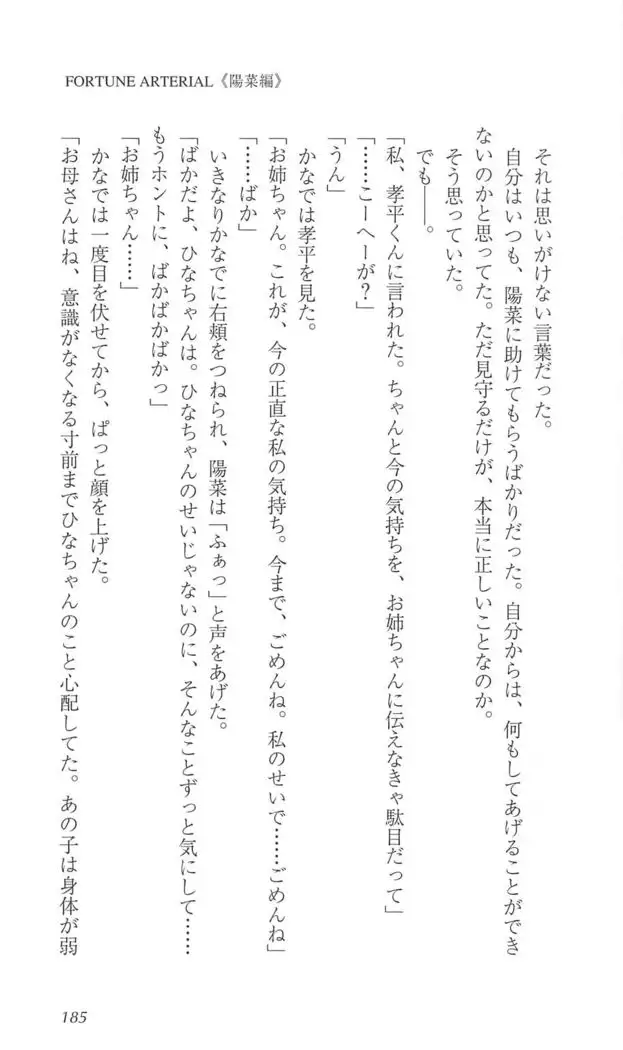 FORTUNE ARTERIAL《陽菜編》
それは思いがけない言葉だった。
自分はいつも、陽菜に助けてもらうばかりだった。自分からは、何もしてあげることができ
ないのかと思ってた。ただ見守るだけが、本当に正しいことなのか。
そう思っていた。
でも――。
「私、孝平くんに言われた。ちゃんと今の気持ちを、お姉ちゃんに伝えなきゃ駄目だって」
「……こーへーが？」
「うん」
かなでは孝平を見た。
「お姉ちゃん。これが、今の正直な私の気持ち。今まで、ごめんね。私のせいで……ごめんね」
「……ばか」
いきなりかなでに右頬をつねられ、陽菜は「ふぁっ」と声をあげた。
「ばかだよ、ひなちゃんは。ひなちゃんのせいじゃないのに、そんなことずっと気にして……
もうホントに、ばかばかばかっ」
「お姉ちゃん……」
かなでは一度目を伏せてから、ぱっと顔を上げた。
「お母さんはね、意識がなくなる寸前までひなちゃんのこと心配してた。あの子は身体が弱
185